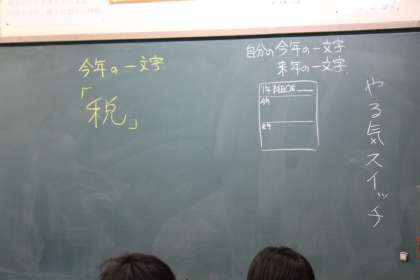 今年の一文字
「税」
自分の今年の一文字
来年の一文字
今年
来年
やる気スイッチ